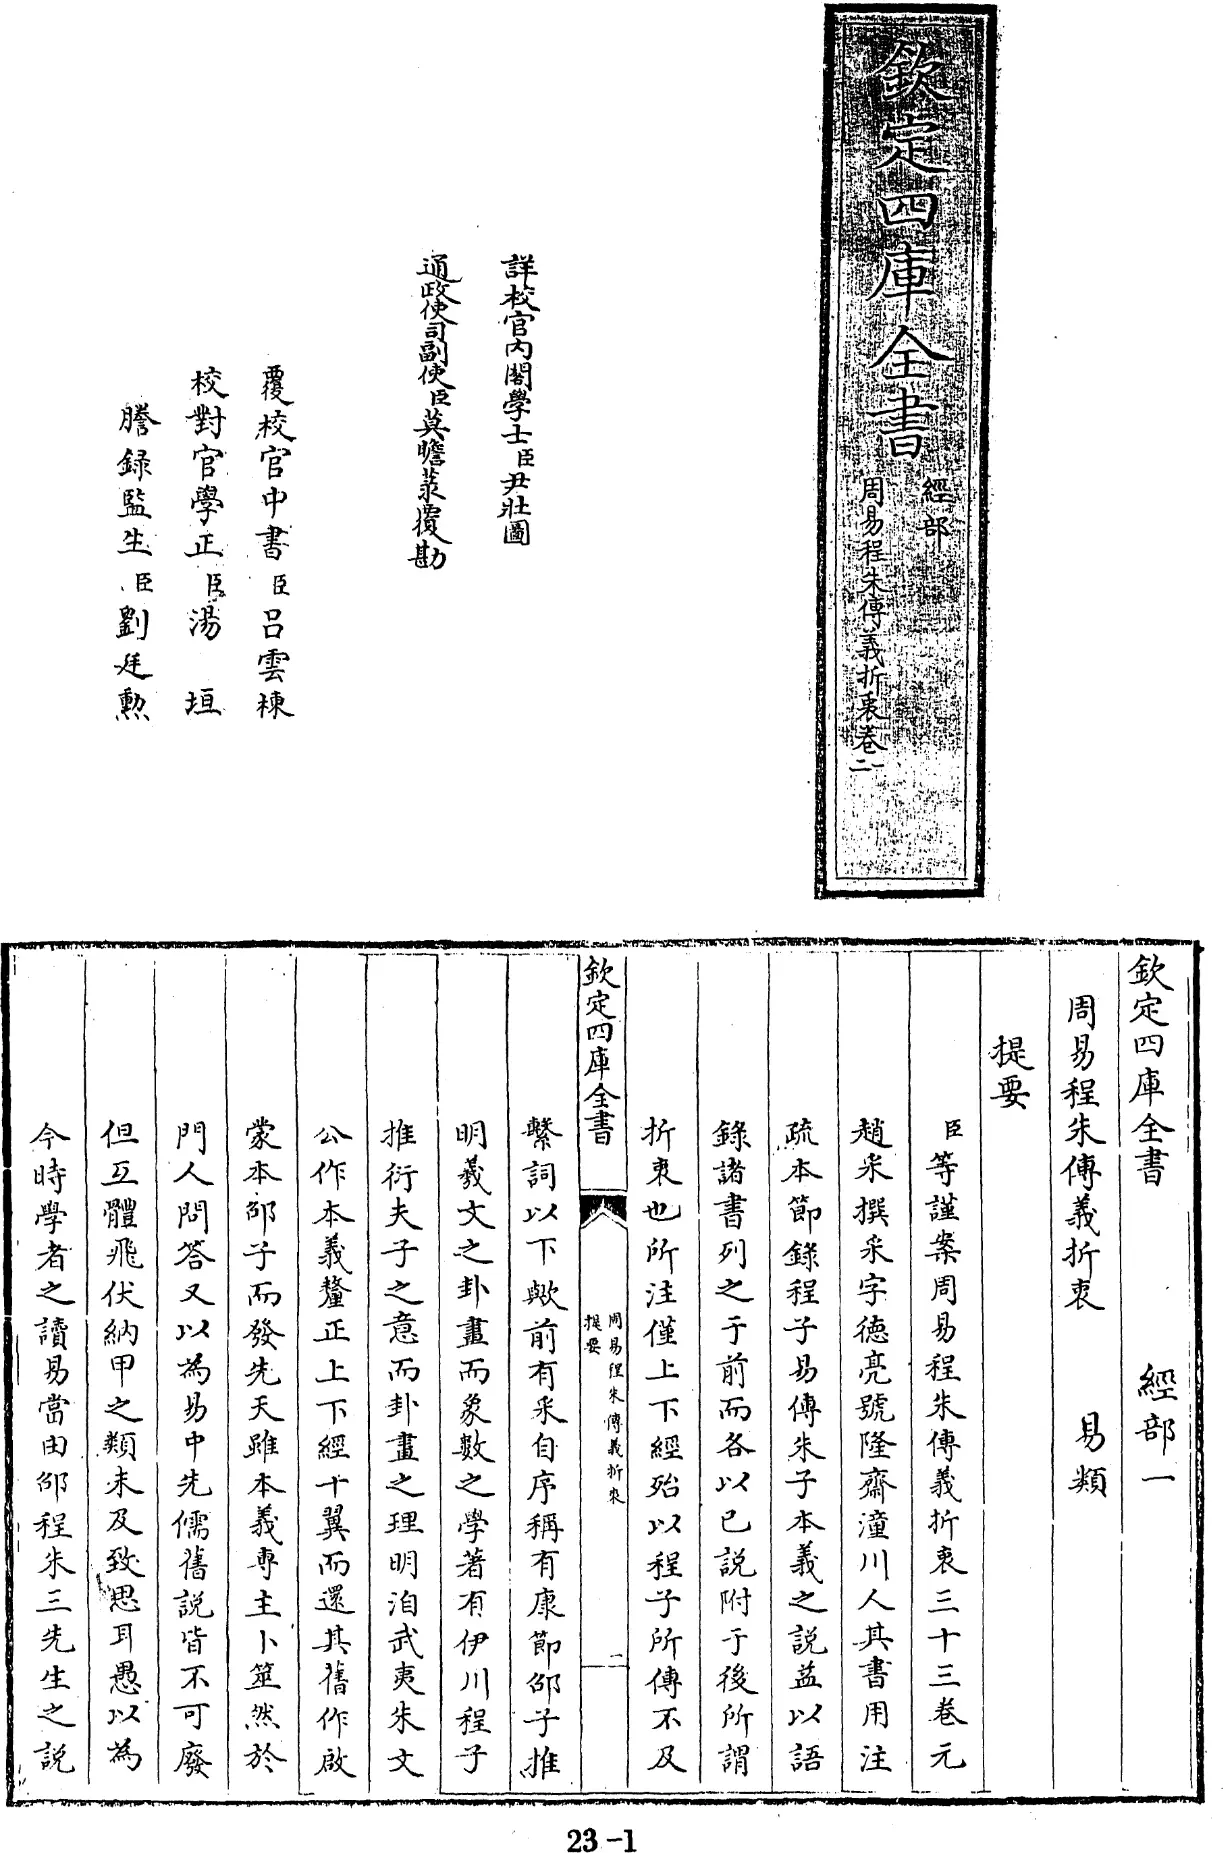 欽定四庫全書
經部
周易程朱傳義折衷卷一二
詳校官內閣學士臣尹壯圖
通政使司副使臣莫瞻菉覆勘
覆校官中書臣呂雲棟
校對官學正臣湯垣
謄録監生臣劉廷勲
欽定四庫全書 經部一
周易程朱傳義折衷 易類
提要
臣等謹案周易程朱傳義折衷三十三卷元
趙采撰采字德亮號隆齋潼川人其書用注
疏本節錄程子易傳朱子本義之説益以語
錄諸書列之于前而各以已説附于後所謂
折衷也所注僅上下經殆以程子所傳不及
欽定四庫全書
周易程朱傳義折衷
提要
二
繫詞以下歟前有采自序稱有康節邵子推
明羲文之卦畫而象數之學著有伊川程子
推衍夫子之意而卦畫之理明洎武夷朱文
公作本義釐正上下經十翼而還其舊作啟
蒙本邵子而發先天雖本義專主卜筮然於
門人問答又以為易中先儒舊説皆不可廢
但互體飛伏納甲之類未及致思耳愚以為
今時學者之讀易當由邵程朱三先生之説
23-1